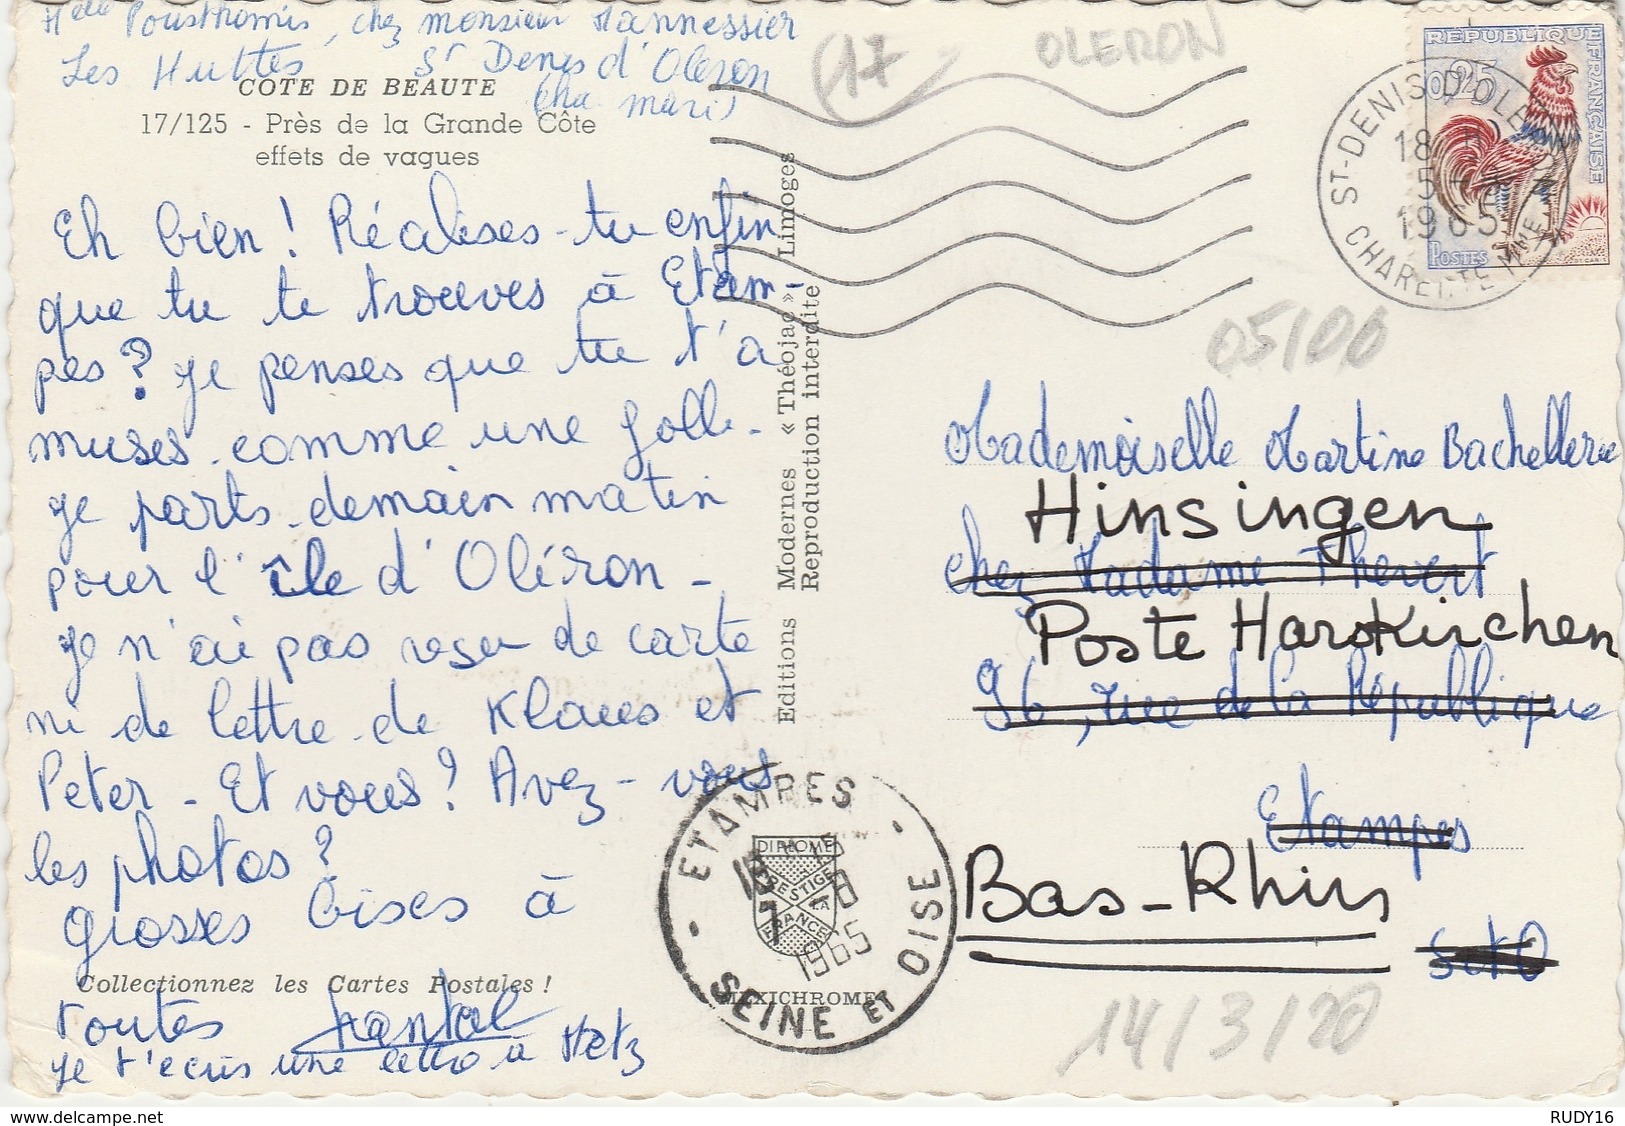 Melle Pousthomis, chez monsieur Hannessier
Les Huttes St Denis d'Oleron
(Cha mari)
COTE DE BEAUTE
17/125 - Près de la Grande Côte
effets de vagues
Eh bien ! Réalises-tu enfin
que tu te trouves à Etam-
pes ? je penses que tu t'a
muses comme une folle.
je parts demain matin
pour l'île d'Oléron -
je n'ai pas reçu de carte
ni de lettre de Klaus et
Peter - Et vous ? Avez-vous
les photos ?
grosses bises à
Collectionnez les Cartes Postales !
toutes Chantal
je t'écris une lettre à Metz
Editions Modernes « Théojac » Limoges
Reproduction interdite
MEXICHROME
DIPLOME
PRESTIGE
DE LA
FRANCE
ETAMPES
18
7 -8
1965
SEINE ET OISE
(17)
OLERON
REPUBLIQUE FRANÇAISE
0,25
POSTES
ST-DENIS D'OLERON
18 H
5 -8
1965
CHARENTE MME
05/00
Mademoiselle Martine Bachellerie
Hinsingen
chez Madame Thevert
Poste Harskirchen
96, rue de la République
Etampes
Bas-Rhin
S et O
14/3/20
www.delcampe.net
RUDY16